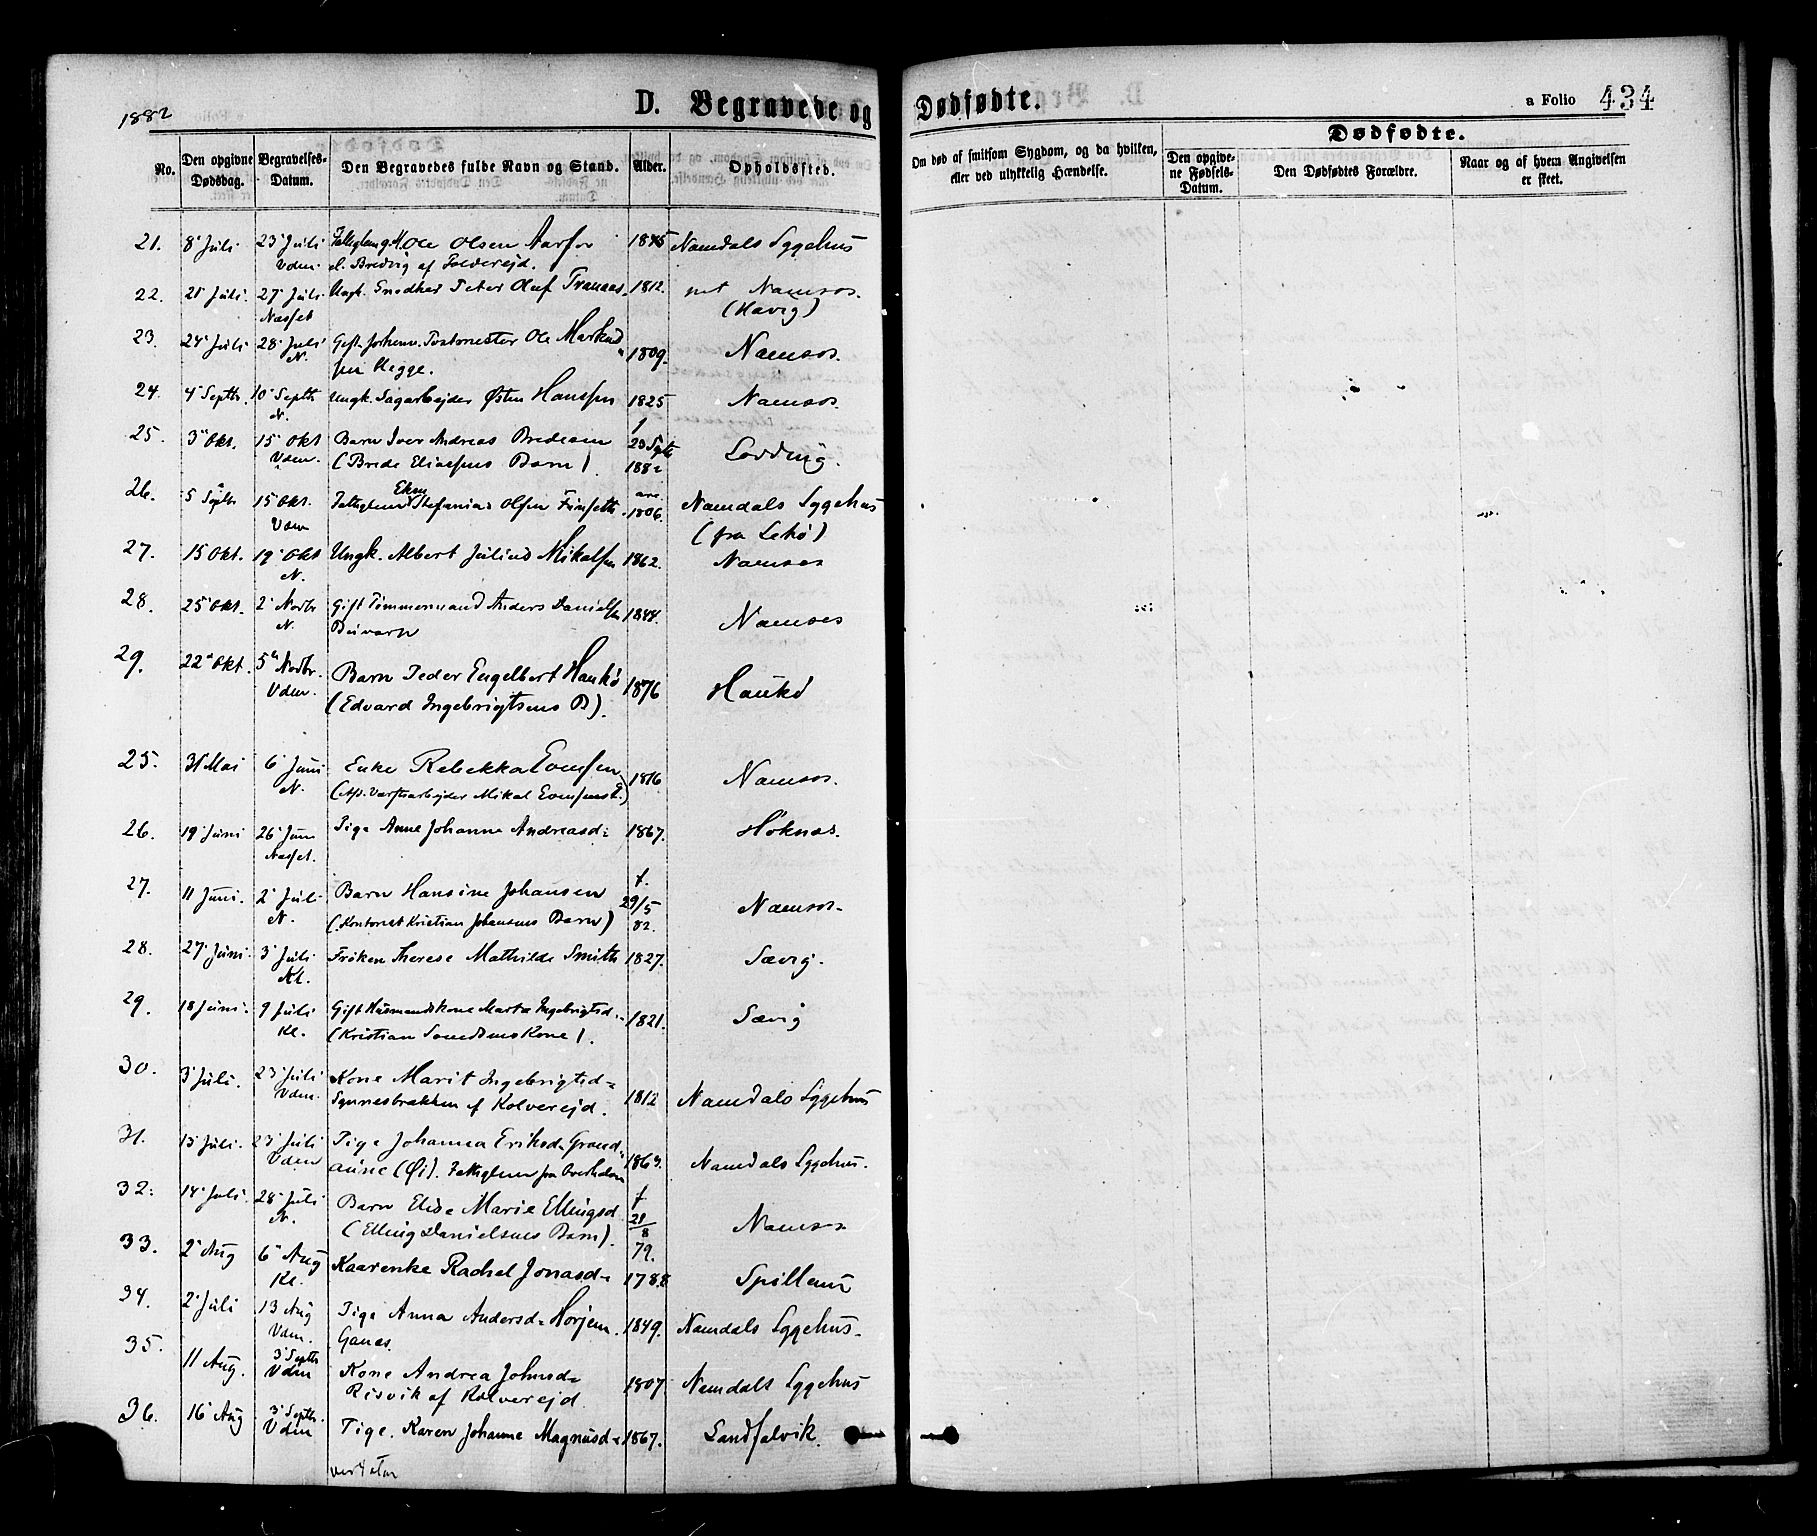 1882
D. Begravede og Dødfødte.
a Folio 434
No.
Den opgivne Dødsdag.
Begravelses-Datum.
Den Begravedes fulde Navn og Stand.
Alder.
Opholdssted.
Om død af smitsom Sygdom, og da hvilken, eller ved ulykkelig Hændelse.
Dødfødte.
Den opgivne Fødsels-Datum.
Den Dødfødtes Forældre.
Naar og af hvem Angivelsen er skeet.
21. 8' Juli 23' Juli Ole Olsen 1845 Namdals Sygehus
Vdm. af Folderejd.
22. 21' Juli. 27' Juli Ungk. Snedker Peter Oluf Tranaas 1812. Namsos.
Næsset (Havig)
23. 24' Juli 28' Juli Gift Postmester Ole Markus 1809. Namsos.
N. Hegge.
24. 4' Septbr. 10' Septbr Ungk. Sagarbejder Østen Hanssen 1825 Namsos.
N.
25. 3' Okt. 15' Okt Barn Iver Andreas f 23 Septb 1882 Lodding.
Vdm. (Brede Eliasens Barn)
26. 5' Septbr 15' Okt. Stefanias Olsen Finseth. 1806. Namdals Sygehus
Vdm (fra Lekø)
27. 15 Okt. 19' Okt Ungk. Albert Julius Mikalsen 1862. Namsos
N.
28. 25' Okt. 2' Novbr Gift Timmermand Anders Danielsen 1844. Namsos
N.
29. 22' Okt. 5' Novbr. Barn Peder Engelbert Haukø 1876 Haukø
Vdm. (Edvard Ingebrigtsens B).
25. 31' Mai 6' Juni Enke Rebekka Evensen 1816 Namsos.
N. (Afd. Værftsarbejder Mikal Evensens E.)
26. 19' Juni 26' Juni Pige Anne Johanne Andreasd= 1867. Høknæs.
Næsset.
27. 11 Juni. 2' Juli Barn Hansine Johansen f. 29/5 82. Namsos.
N. (Kontorist Kristian Johansens Barn)
28. 27' Juni. 3' Juli Frøken Therese Mathilde Smith 1827. Sævig.
Kl.
29. 18' Juni. 9' Juli Gift Husmandskone Marta Ingebrigtsd. 1821. Sævig
Kl. (Kristian Kone).
30. 3' Juli. 23' Juli Kone Marit Ingebrigtsd= 1812 Namdals Sygehus
Vdm. af Kolverejd.
31. 13' Juli. 23' Juli Pige Johanna Eriksd= 186 Namdals Sygehus.
Vdm (Øi). fra Overhalden
32. 14' Juli. 28' Juli Barn Elide Marie Ellingsd f 21/8 79. Namsos
N. (Elling Danielsens Barn).
33. 2' Aug 6' Aug Kaarenke Rachel Jonasd= 1788 Spillum
Kl.
34. 2' Juli 13 Aug Pige Anna Andersd= 1849. Namdals Sygehus.
Vdm. Ganas.
35. 11 Aug. 3' Septbr Kone Andrea Johnsd= 1807 Namdals Sygehus
Vdm Risvik af Kolverejd.
36. 16' Aug 3' Septbr. Pige. Karen Johanne Magnusd= 1867. Landfalvik.
Vdm